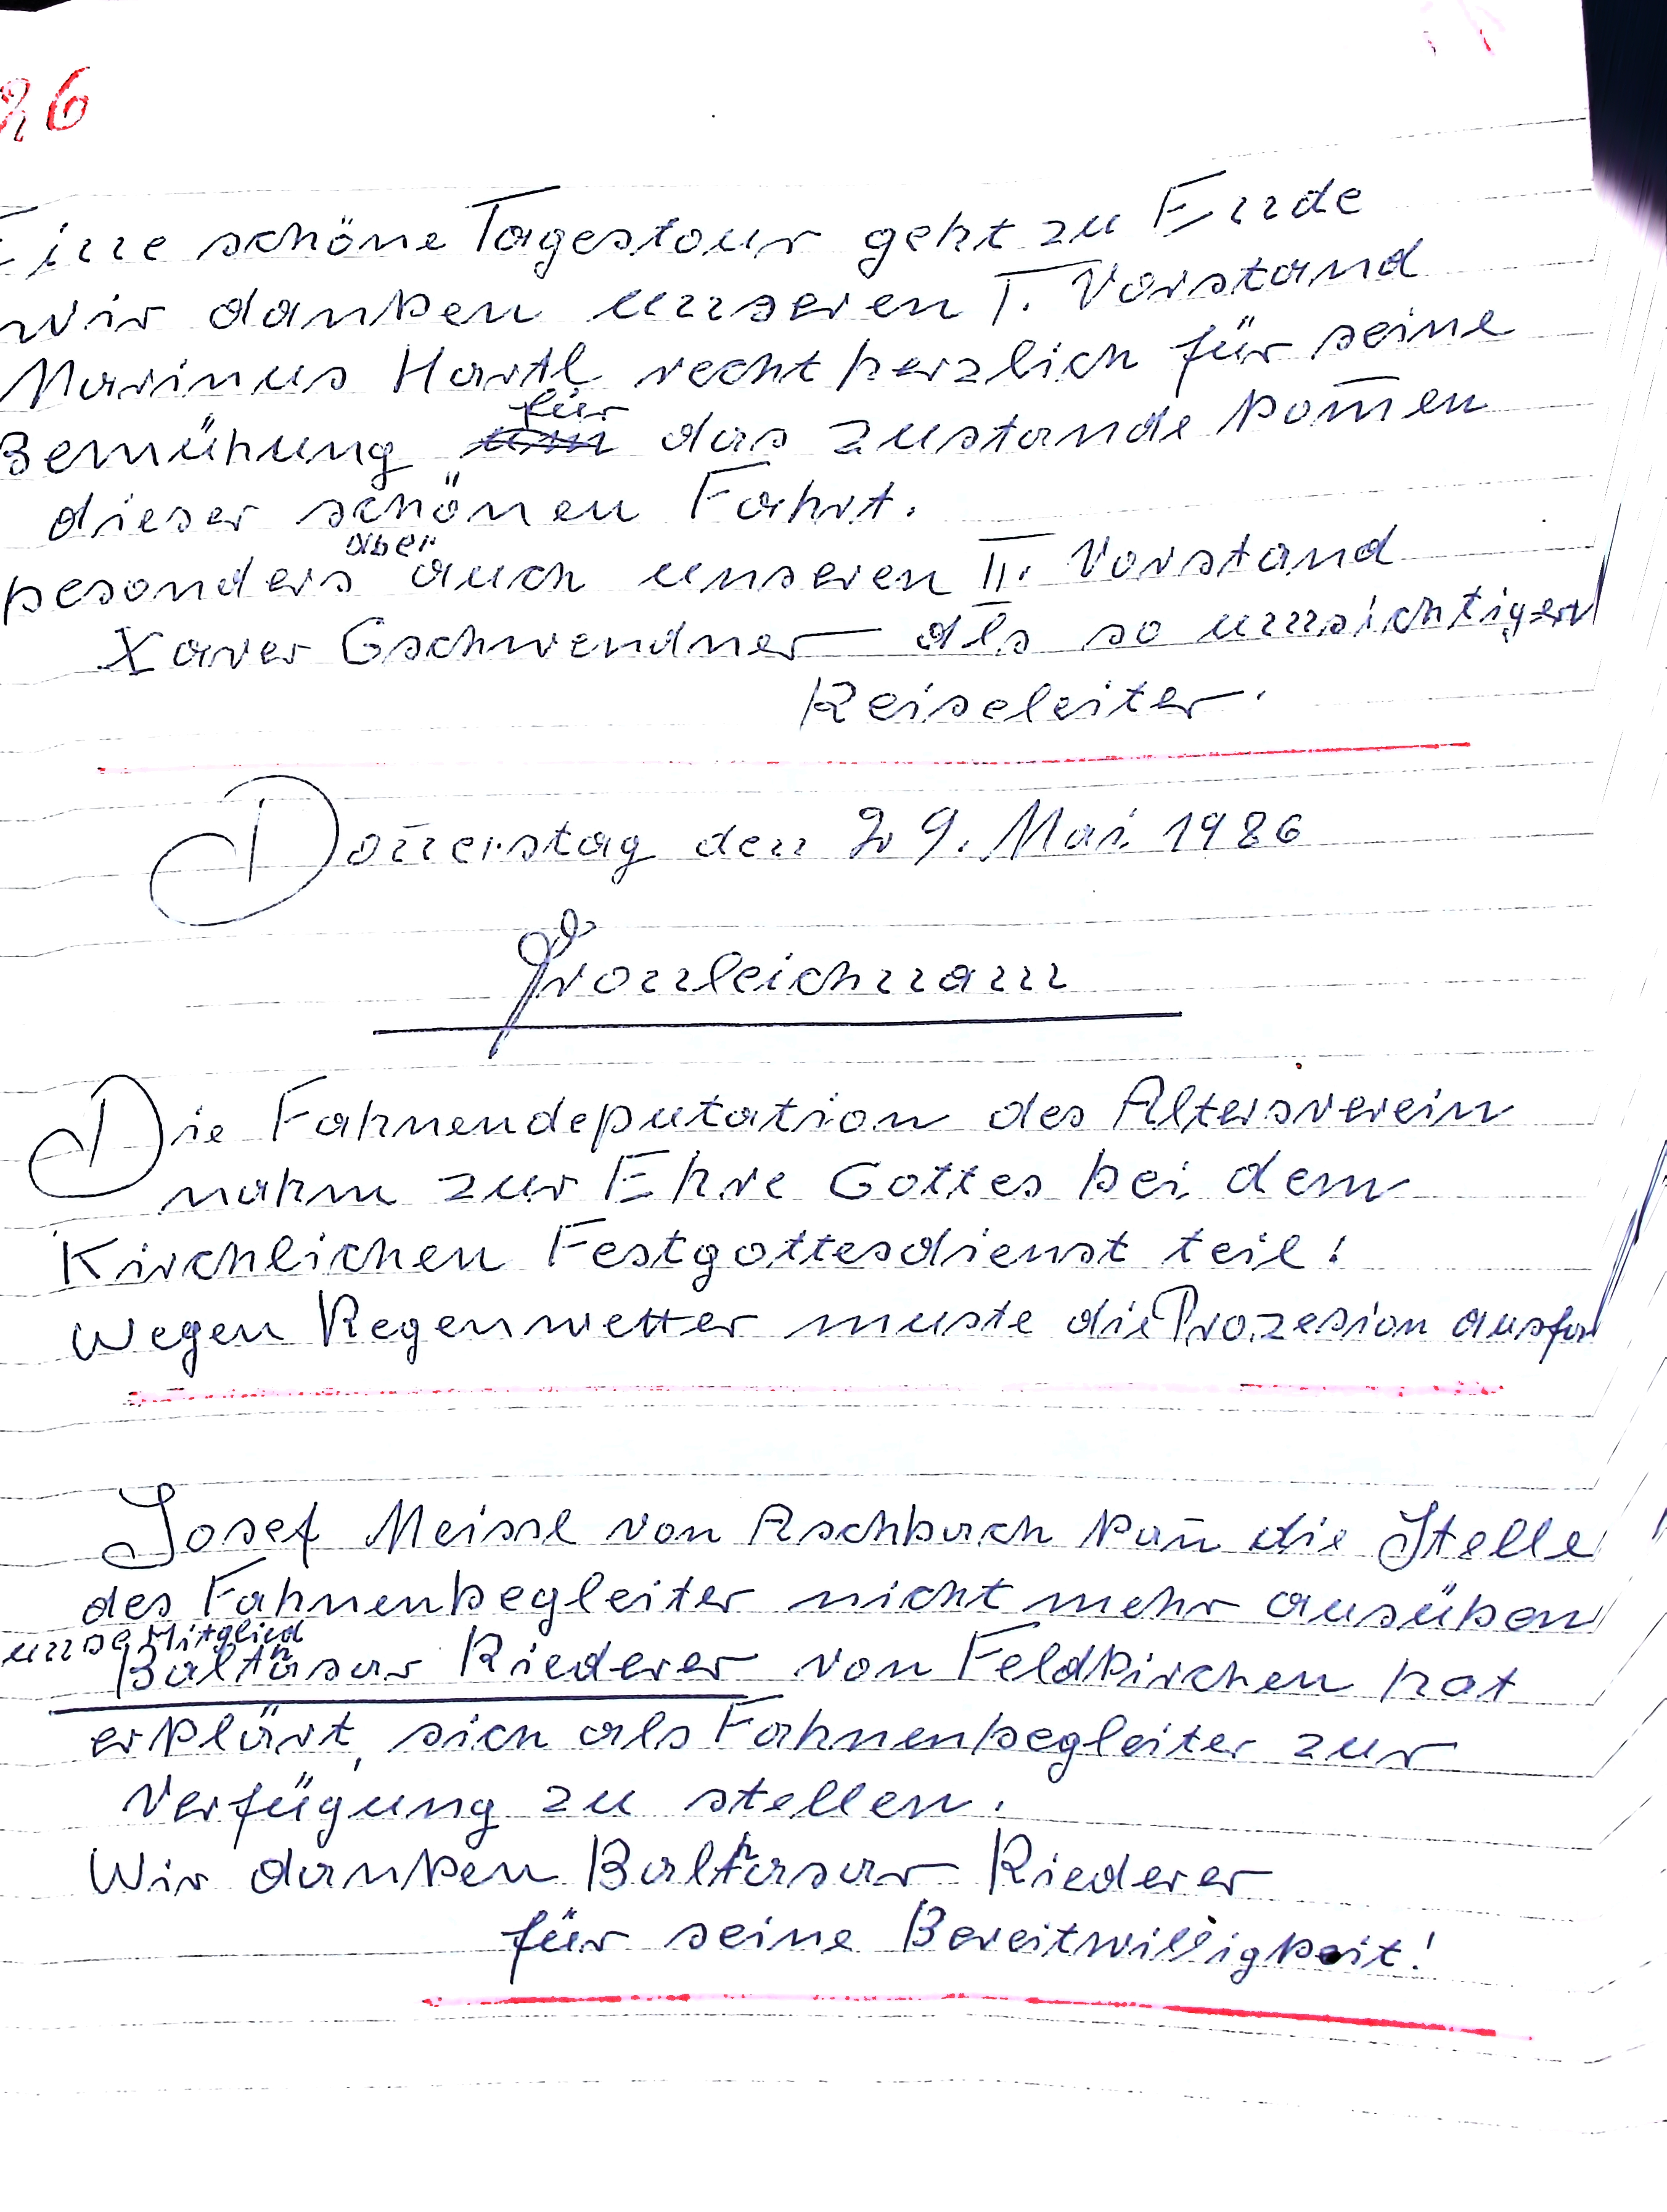 26
Eine schöne Tagestour geht zu Ende
wir danken unseren I. Vorstand
Marinus Hartl recht herzlich für seine
Bemühung für das zustande kom̅en
dieser schönen Fahrt.
besonders aber auch unseren II. Vorstand
Xaver Gschwendner als so umsichtigen
Reiseleiter.
Don̅erstag den 29. Mai 1986
Fronleichnam
Die Fahnendeputation des Altersverein
nahm zur Ehre Gottes bei dem
Kirchlichen Festgottesdienst teil!
Wegen Regenwetter muste die Prozesion ausfal
Josef Meissl von Aschbach kan̅ die Stelle
des Fahnenbegleiter nicht mehr ausüben
unse Mitglied
Balthasar Riederer von Feldkirchen hat
erklärt, sich als Fahnenbegleiter zur
Verfügung zu stellen.
Wir danken Balthasar Riederer
für seine Bereitwilligkeit!